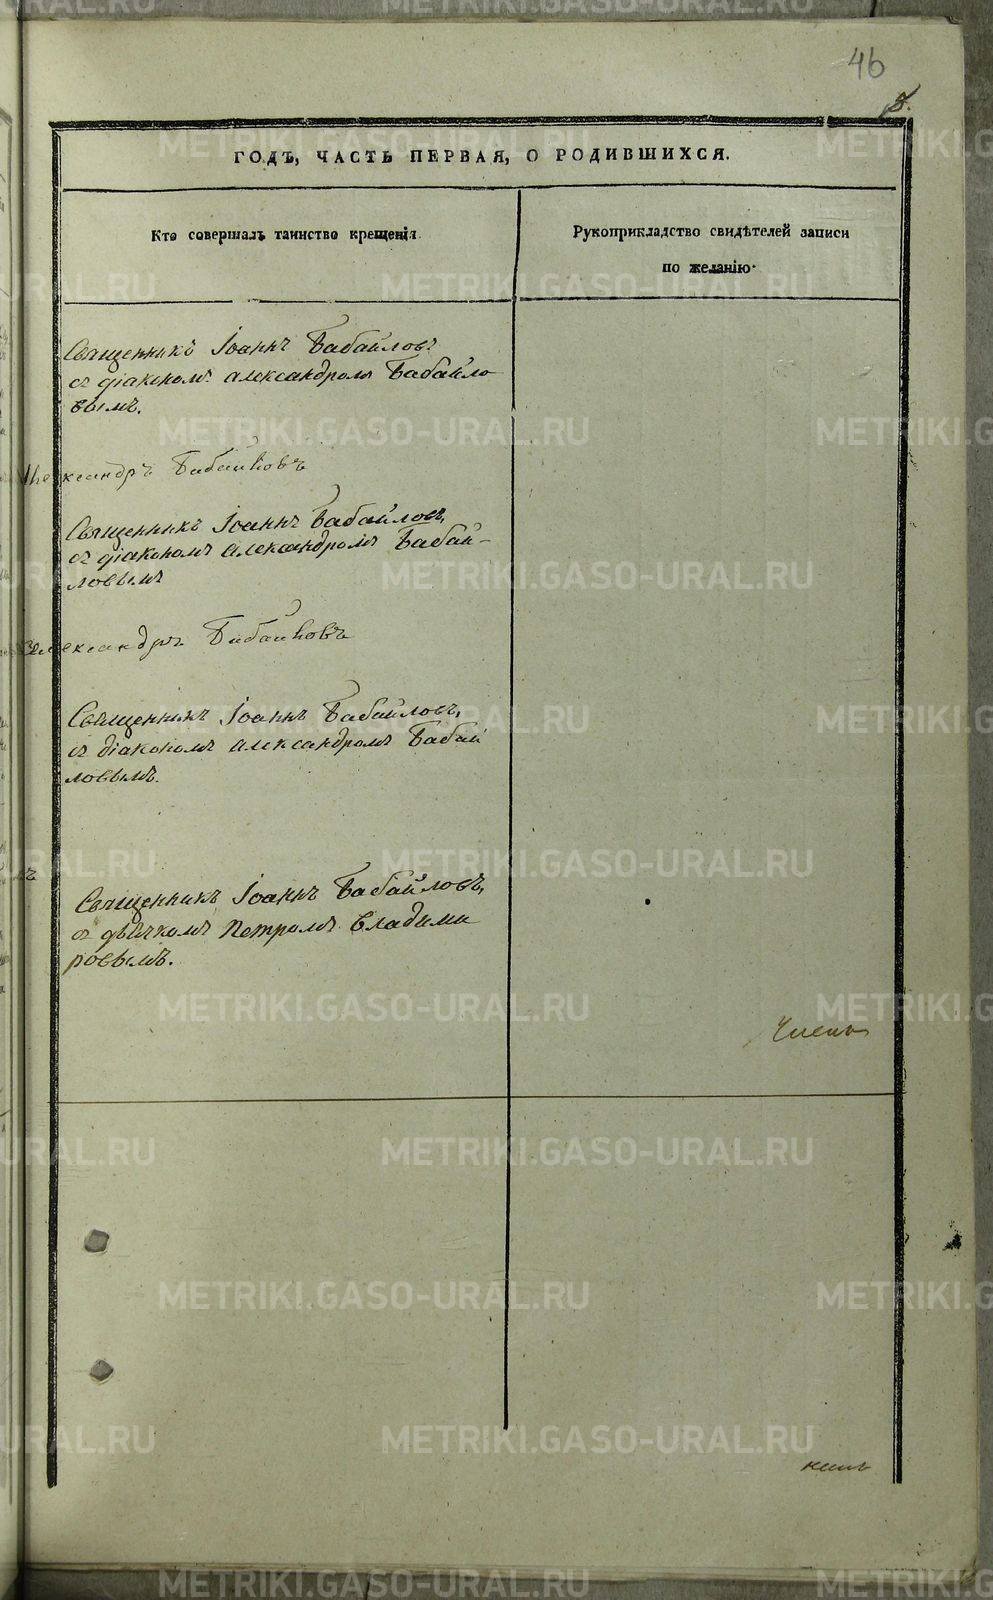 46
ГОДЪ, ЧАСТЬ ПЕРВАЯ, О РОДИВШИХСЯ.
Кто совершалъ таинство крещенія
Рукоприкладство свидѣтелей записи
по желанію·
Священникъ Іоаннъ Бабайловъ
съ діакономъ Александромъ Бабайло
вымъ.
Александръ Бабайловъ
Священникъ Іоаннъ Бабайловъ,
съ діакономъ Александромъ Бабай-
ловымъ
Александръ Бабайловъ
Священникъ Іоаннъ Бабайловъ,
съ діакономъ Александромъ Бабай
ловымъ.
Священникъ Іоаннъ Бабайловъ,
съ дьячкомъ Петромъ Владими
ровымъ.
Членъ
METRIKI.GASO-URAL.RU